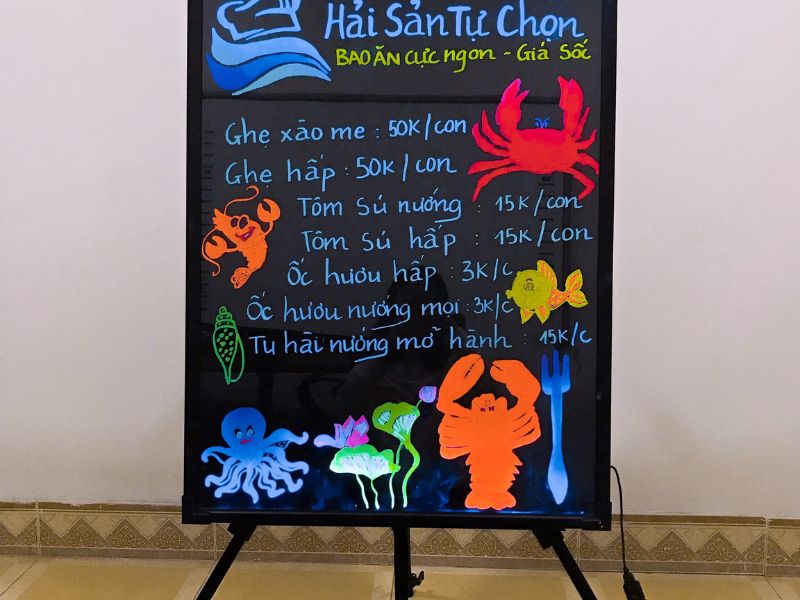 Hải Sản Tự Chọn
BAO ĂN CỰC ngon - Giá Sốc
Ghẹ xào me : 50K/con
Ghẹ hấp : 50K/con
Tôm Sú nướng : 15K/con
Tôm Sú hấp : 15K/con
Ốc hươu hấp : 3K/c
Ốc hươu nướng mọi : 3K/c
Tu hài nướng mỡ hành : 15K/c